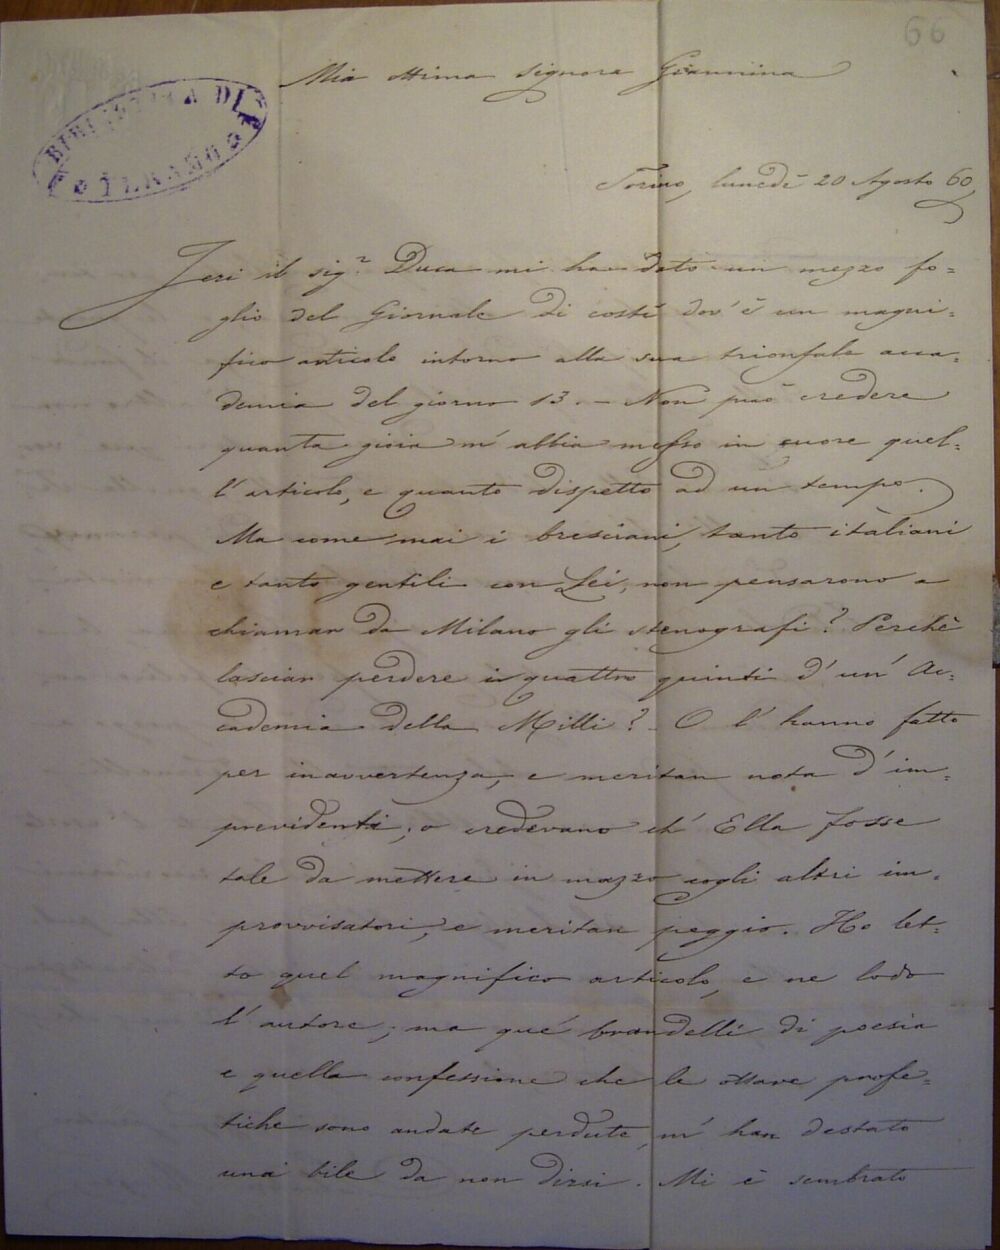 66
Mia ottima signora Giannina
BIBLIOTECA DI
TERAMO
Torino, lunedì 20 Agosto 60,
Jeri il sig.r Duca mi ha dato un mezzo fo=
glio del Giornale di costì dov'è un magni=
fico articolo intorno alla sua trionfale acca=
demia del giorno 13. – Non può credere
quanta gioia m'abbia messo in cuore quel=
l'articolo, e quanto dispetto ad un tempo.
Ma come mai i bresciani, tanto italiani
e tanto gentili con Lei, non pensarono a
chiamar da Milano gli stenografi? Perchè
lasciar perdere i quattro quinti d'un'Ac=
cademia della Milli? O l'hanno fatto
per inavvertenza, e meritan nota d'im=
previdenti; o credevano ch'Ella fosse
tale da mettere in mazzo cogli altri im=
provvisatori, e meritan peggio. Ho let=
to quel magnifico articolo, e ne lodo
l'autore; ma que' brandelli di poesia
e quella confessione che le ottave profe=
tiche sono andate perdute, m'han destato
una bile da non dirsi. Mi è sembrato